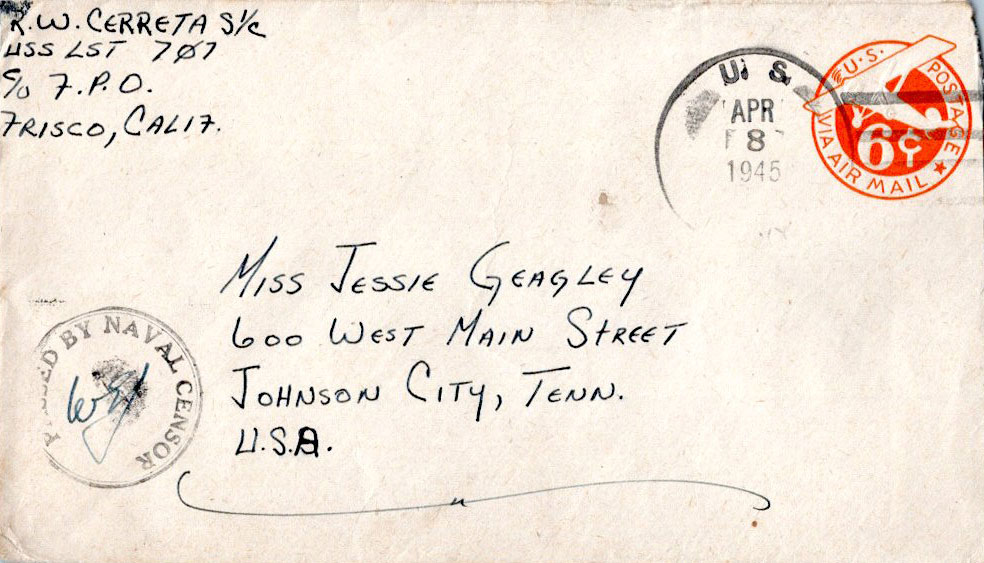 R.W. CERRETA S1/c
USS LST 707
C/O F.P.O.
FRISCO, CALIF.
U. S.
APR
8
1945
U.S. POSTAGE
6¢
VIA AIR MAIL
MISS JESSIE GEAGLEY
600 WEST MAIN STREET
JOHNSON CITY, TENN.
U.S.A.
PASSED BY NAVAL CENSOR